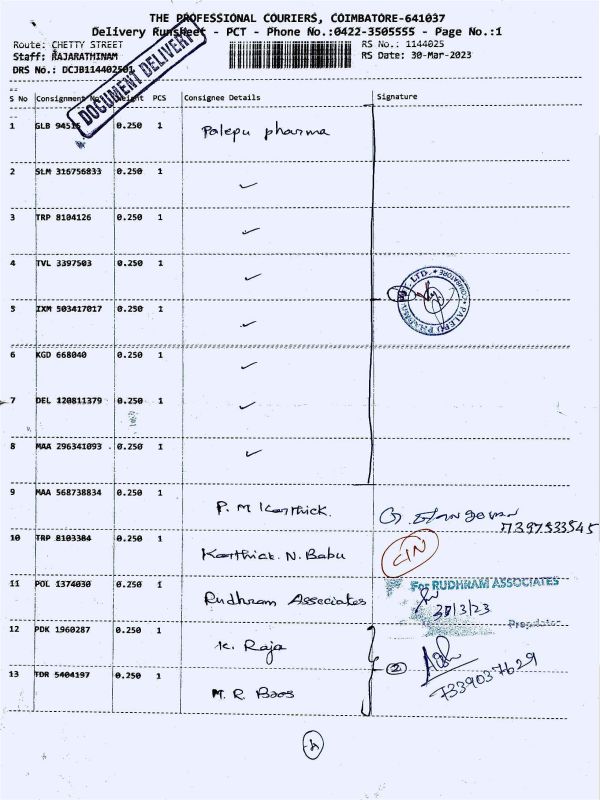 THE PROFESSIONAL COURIERS, COIMBATORE-641037
Delivery Runsheet - PCT - Phone No.:0422-3505555 - Page No.:1
Route: CHETTY STREET RS No.: 1144025
Staff: RAJARATHINAM RS Date: 30-Mar-2023
DRS No.: DCJB114402501
DOCUMENT DELIVERY
S No Consignment No Weight PCS Consignee Details Signature
1 GLB 94515 0.250 1 Palepu pharma
2 SLM 316756833 0.250 1 ✓
3 TRP 8104126 0.250 1 ✓
4 TVL 3397503 0.250 1 ✓
PALEPU COIMBATORE LTD.
5 IXM 503417017 0.250 1 ✓
6 KGD 668040 0.250 1 ✓
7 DEL 120811379 0.250 1 ✓
8 MAA 296341093 0.250 1 ✓
9 MAA 568738834 0.250 1 P. M Karthick.
7397533545
10 TRP 8103384 0.250 1 Karthick. N. Babu
11 POL 1374030 0.250 1 Rudhram Associates For RUDHRAM ASSOCIATES
30/3/23
Proprietor
12 PDK 1960287 0.250 1 K. Raja
2
7339037629
13 TDR 5404197 0.250 1 M. R. Boos